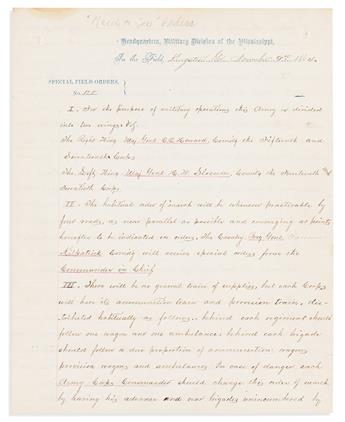 "March to Sea" Orders
Headquarters, Military Division of the Mississippi,
In the Field, Kingston Ga. November 9th 1864.
SPECIAL FIELD ORDERS,
No. 120
I. For the purpose of military operations this Army is divided
into two wings. Viz:
The Right Wing Maj Genl O.O. Howard, Comdg the Fifteenth and
Seventeenth Corps
The Left Wing Maj Genl H. W. Slocum, Comdg the Fourteenth and
Twentieth Corps.
II. The habitual order of march will be whenever practicable by
four roads, as near parallel as possible and converging at points
hereafter to be indicated in orders. The Cavalry, Brig Genl
Kilpatrick Comdg will receive special orders from the
Commander in Chief
III. There will be no general train of supplies, but each Corps
will have its ammunition train and provision train, dis-
tributed habitually as follows. behind each regiment should
follow one wagon and one ambulance, behind each brigade
should follow a due proportion of ammunition wagons
provision wagons and ambulances. In case of danger each
Army Corps Commander should change this order of march
by having his advance and rear brigades unincumbered by